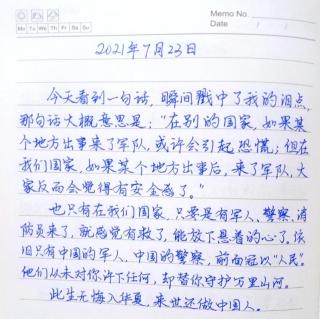 Memo No.
Mo Tu We Th Fr Sa Su
Date / /
2021年7月23日
今天看到一句话,瞬间戳中了我的泪点,
那句话大概意思是:“在别的国家,如果某
个地方出事来了军队,或许会引起恐慌;但在
我们国家,如果某个地方出事后,来了军队,大
家反而会觉得有安全感了。”
也只有在我们国家,只要是有军人、警察、消
防员来了,就感觉有救了,能放下悬着的心了。依
旧只有中国的军人、中国的警察,前面冠以“人民”。
他们从未对你许下任何,却替你守护万里山河。
此生无悔入华夏,来世还做中国人。